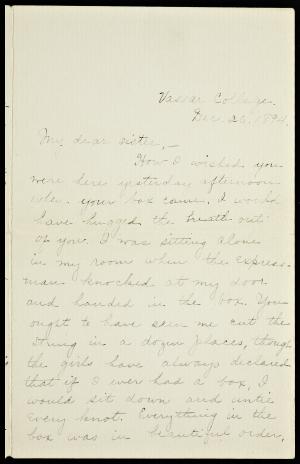 Vassar College.
Dec. 26, 1894.
My dear sister,—
How I wished you
were here yesterday afternoon
when your box came. I would
have hugged the breath out
of you. I was sitting alone
in my room when the express-
man knocked at my door
and handed in the box. You
ought to have seen me cut the
string in a dozen places, though
the girls have always declared
that if I ever had a box, I
would sit down and untie
every knot. Everything in the
box was in beautiful order,